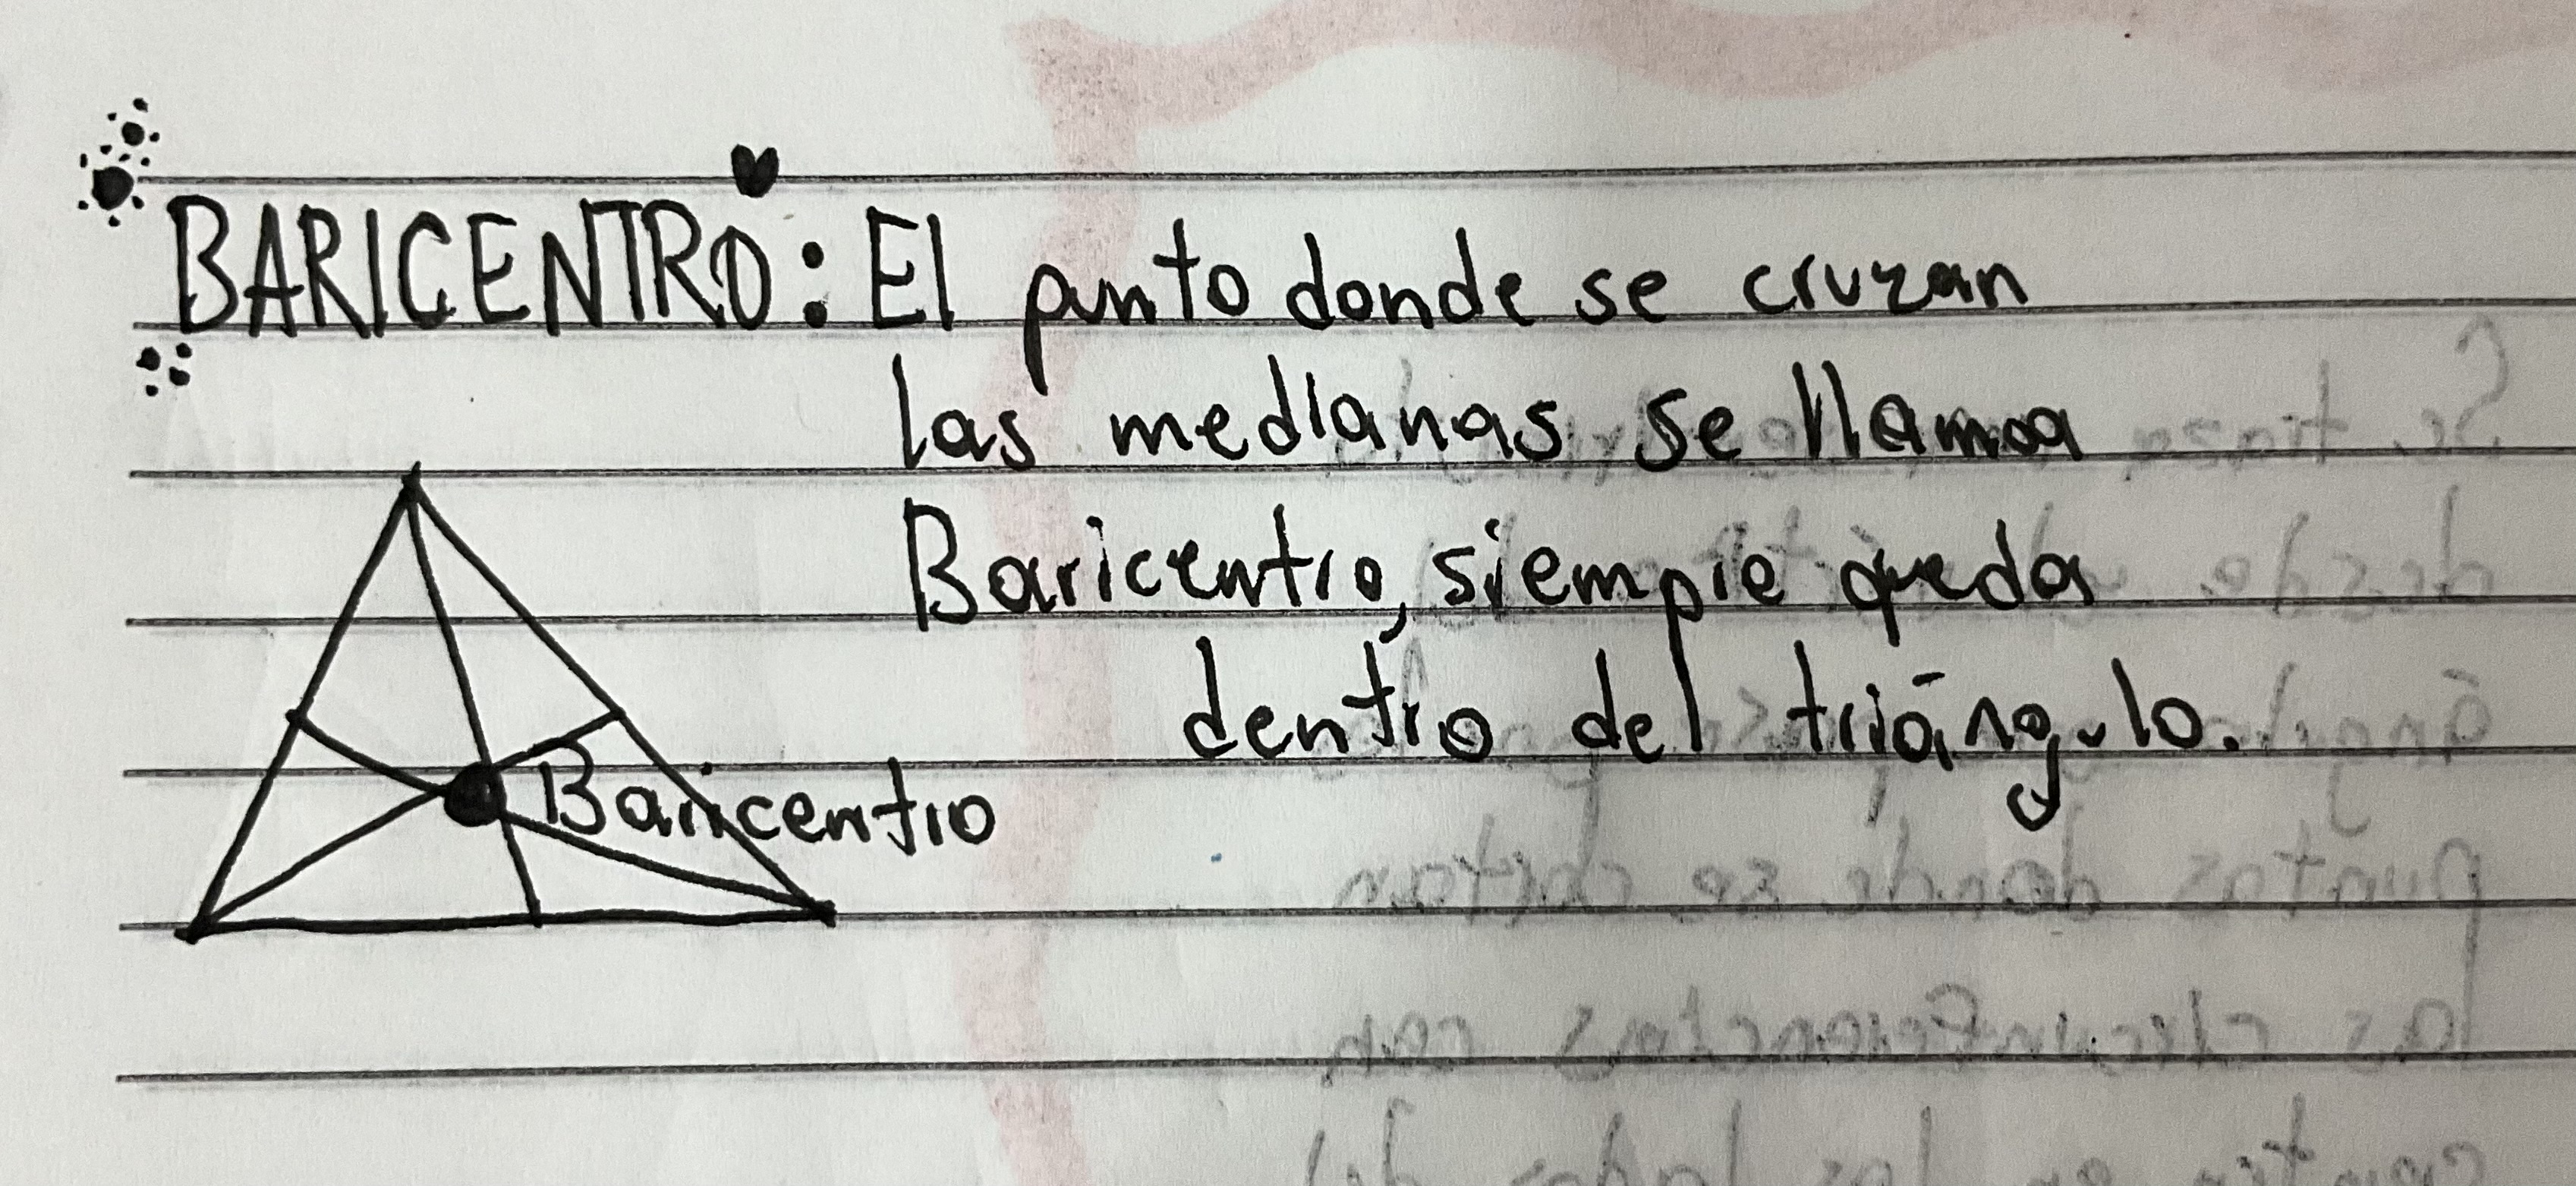 BARICENTRO: El punto donde se cruzan
las medianas se llama
Baricentro, siempre queda
dentro del triángulo.
Baricentro